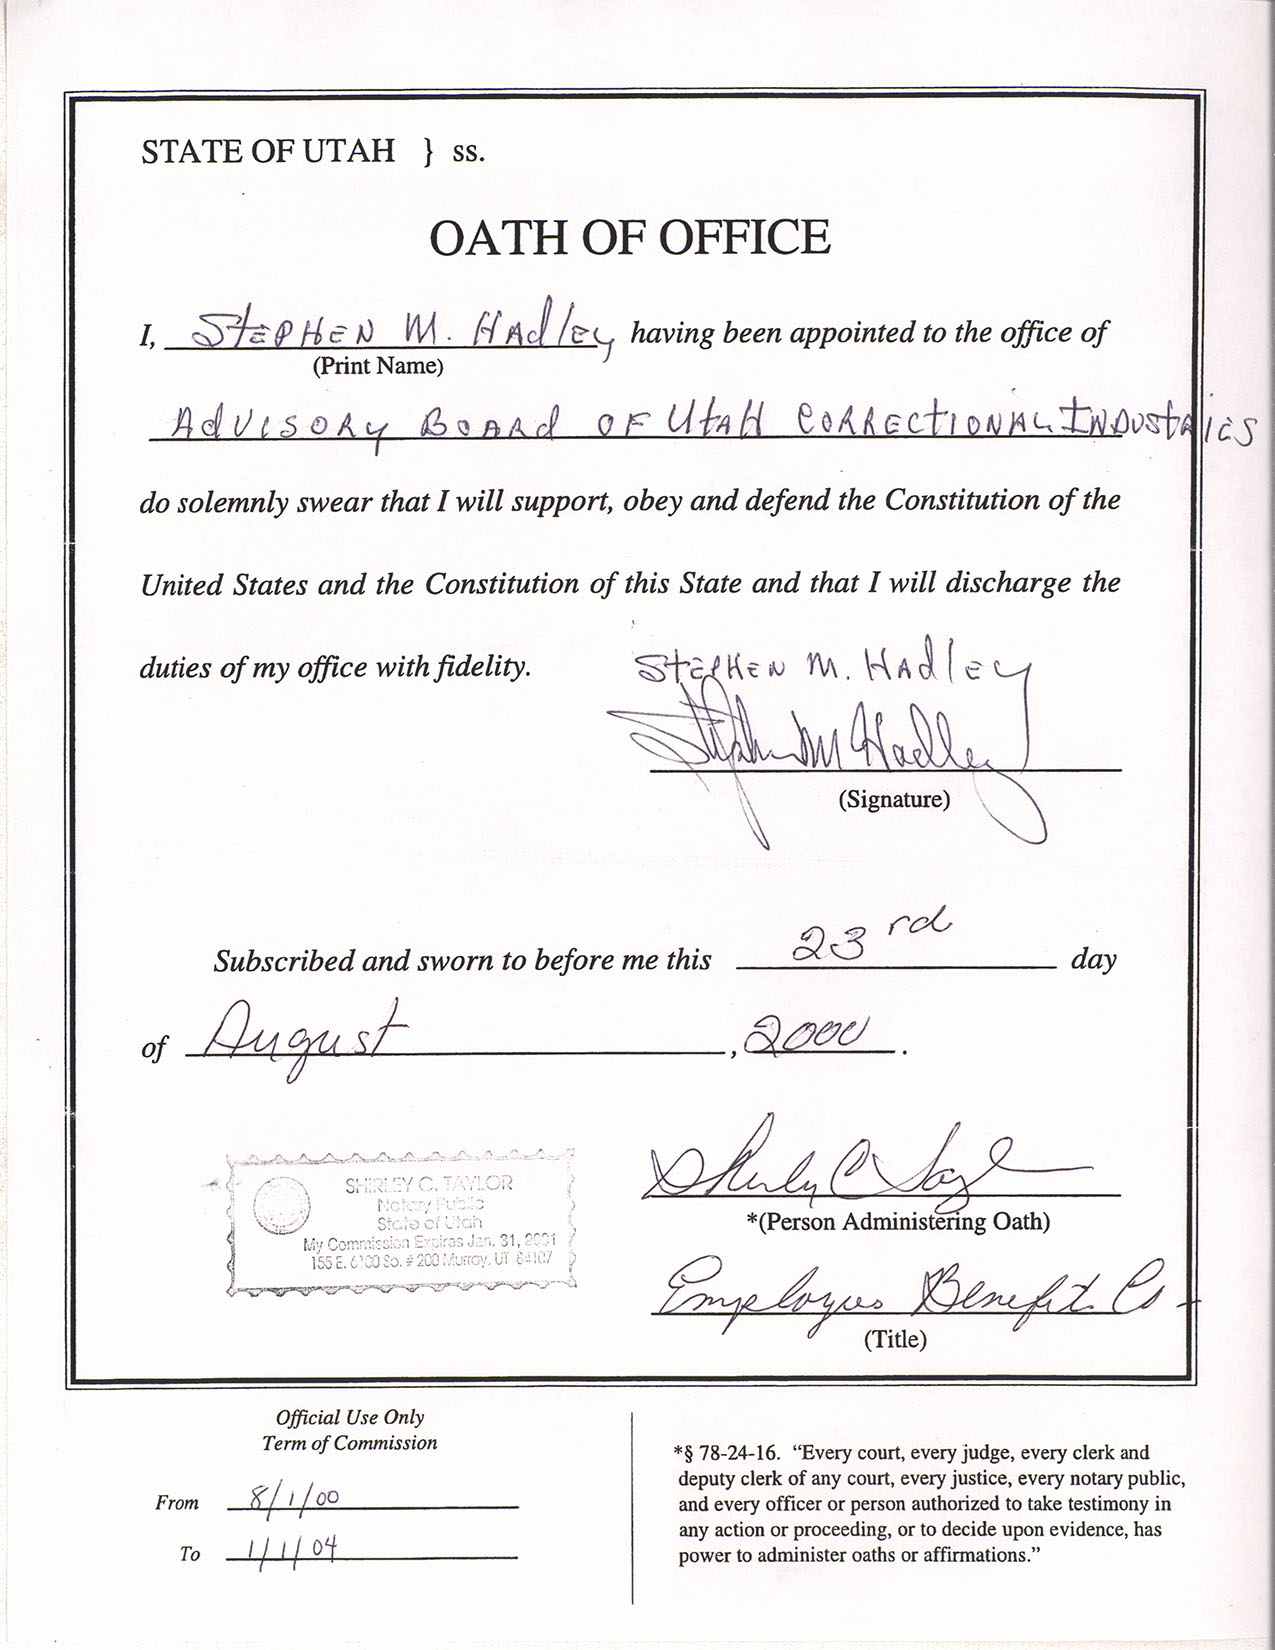 STATE OF UTAH } ss.
OATH OF OFFICE
I, STEPHEN M. HAdlEy having been appointed to the office of
(Print Name)
AdVISORy BOARd OF UtAH CORRECtIONAL INDUStRIES
do solemnly swear that I will support, obey and defend the Constitution of the
United States and the Constitution of this State and that I will discharge the
duties of my office with fidelity.
STEPHEN M. HAdlEy
Stephen M Hadley
(Signature)
Subscribed and sworn to before me this 23rd day
of August, 2000.
SHIRLEY C. TAYLOR
Notary Public
State of Utah
My Commission Expires Jan. 31, 2001
155 E. 6100 So. # 200 Murray, UT 84107
Shirley C Taylor
*(Person Administering Oath)
Employees Benefit Co
(Title)
Official Use Only
Term of Commission
From 8/1/00
To 1/1/04
*§ 78-24-16. “Every court, every judge, every clerk and
deputy clerk of any court, every justice, every notary public,
and every officer or person authorized to take testimony in
any action or proceeding, or to decide upon evidence, has
power to administer oaths or affirmations.”